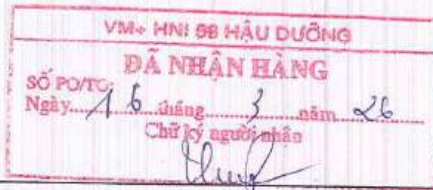 VM+ HNI 98 HẬU DƯỠNG
ĐÃ NHẬN HÀNG
SỐ PO/TO:
Ngày 16 tháng 3 năm 26
Chữ ký người nhận